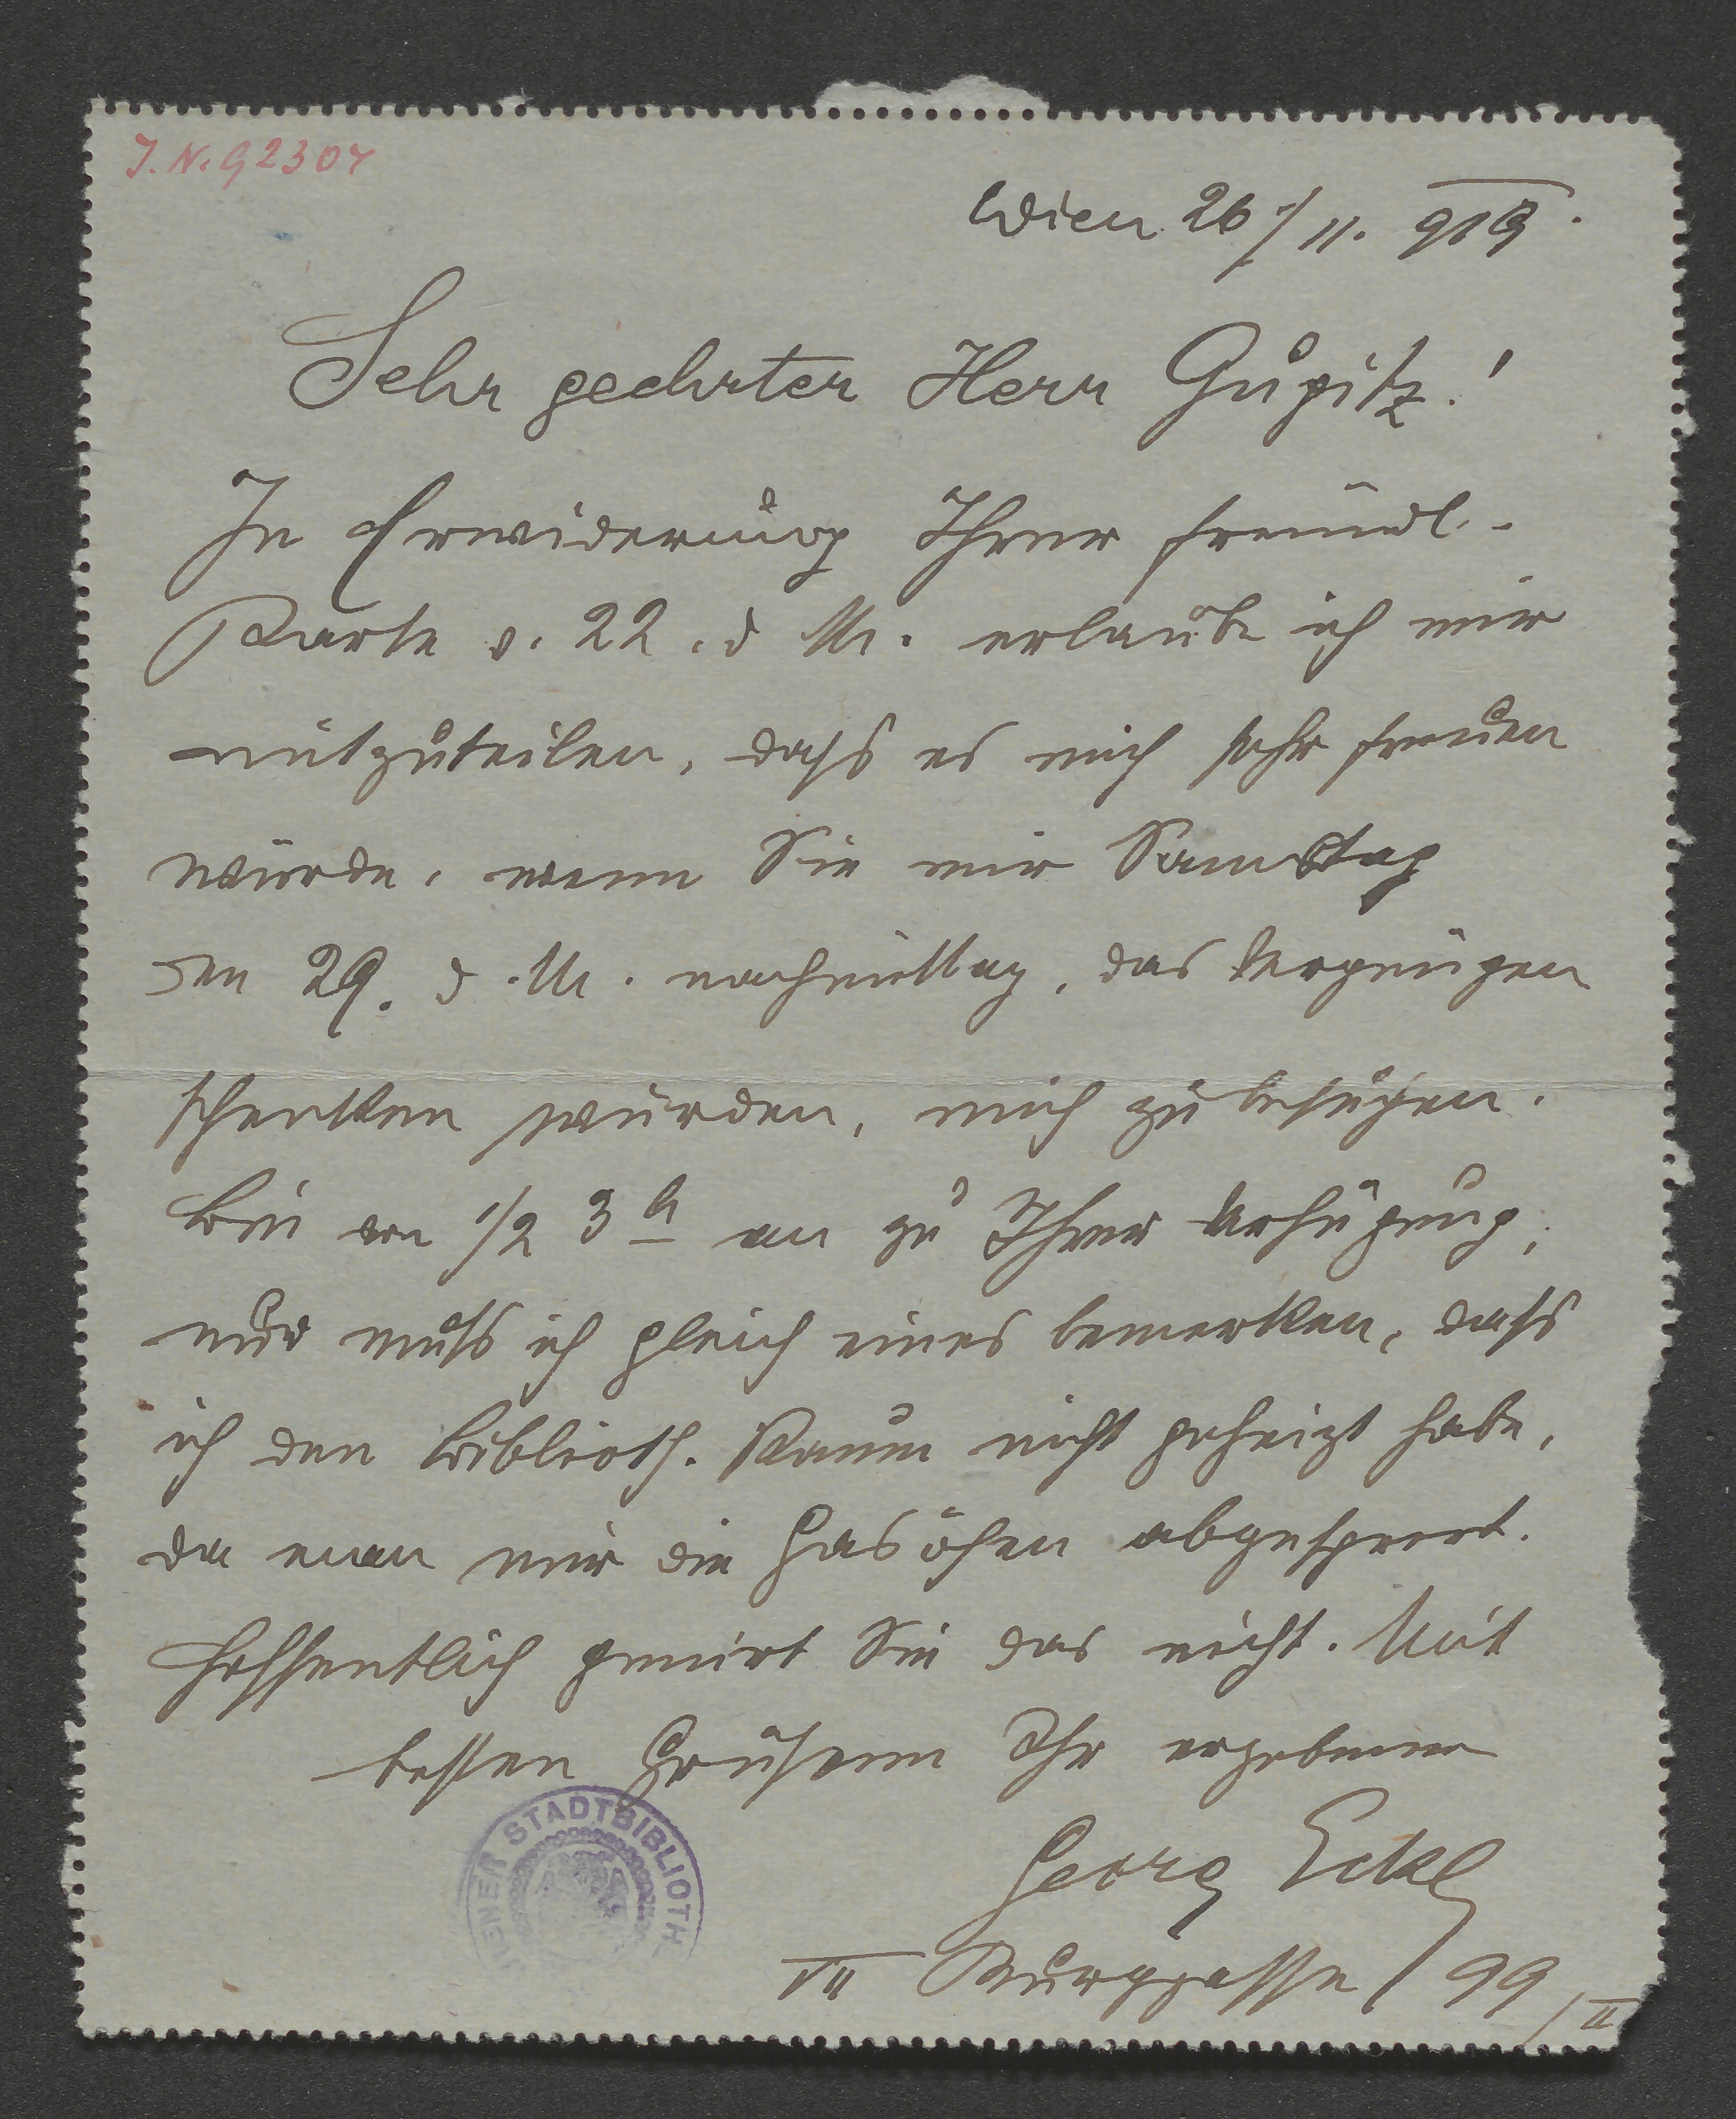 J. N. 92307
Wien 26/11. 919.
Sehr geehrter Herr Gugitz!
In Erwiderung Ihrer freundl.
Karte v. 22. d M. erlaube ich mir
mitzuteilen, dass es mich sehr freuen
würde, wenn Sie mir Samstag
den 29. d. M. nachmittag, das Vergnügen
schenken würden, mich zu besuchen.
Bin von 1/2 3 h an zu Ihrer Verfügung,
nur muss ich gleich eines bemerken, dass
ich den Biblioth. Raum nicht geheizt habe,
da man mir die Gasöfen abgesperrt.
Hoffentlich genirt Sie das nicht. Mit
besten Grüssen Ihr ergebener
Georg Eckl
VII Burggasse / 99 / II
WIENER STADTBIBLIOTHEK